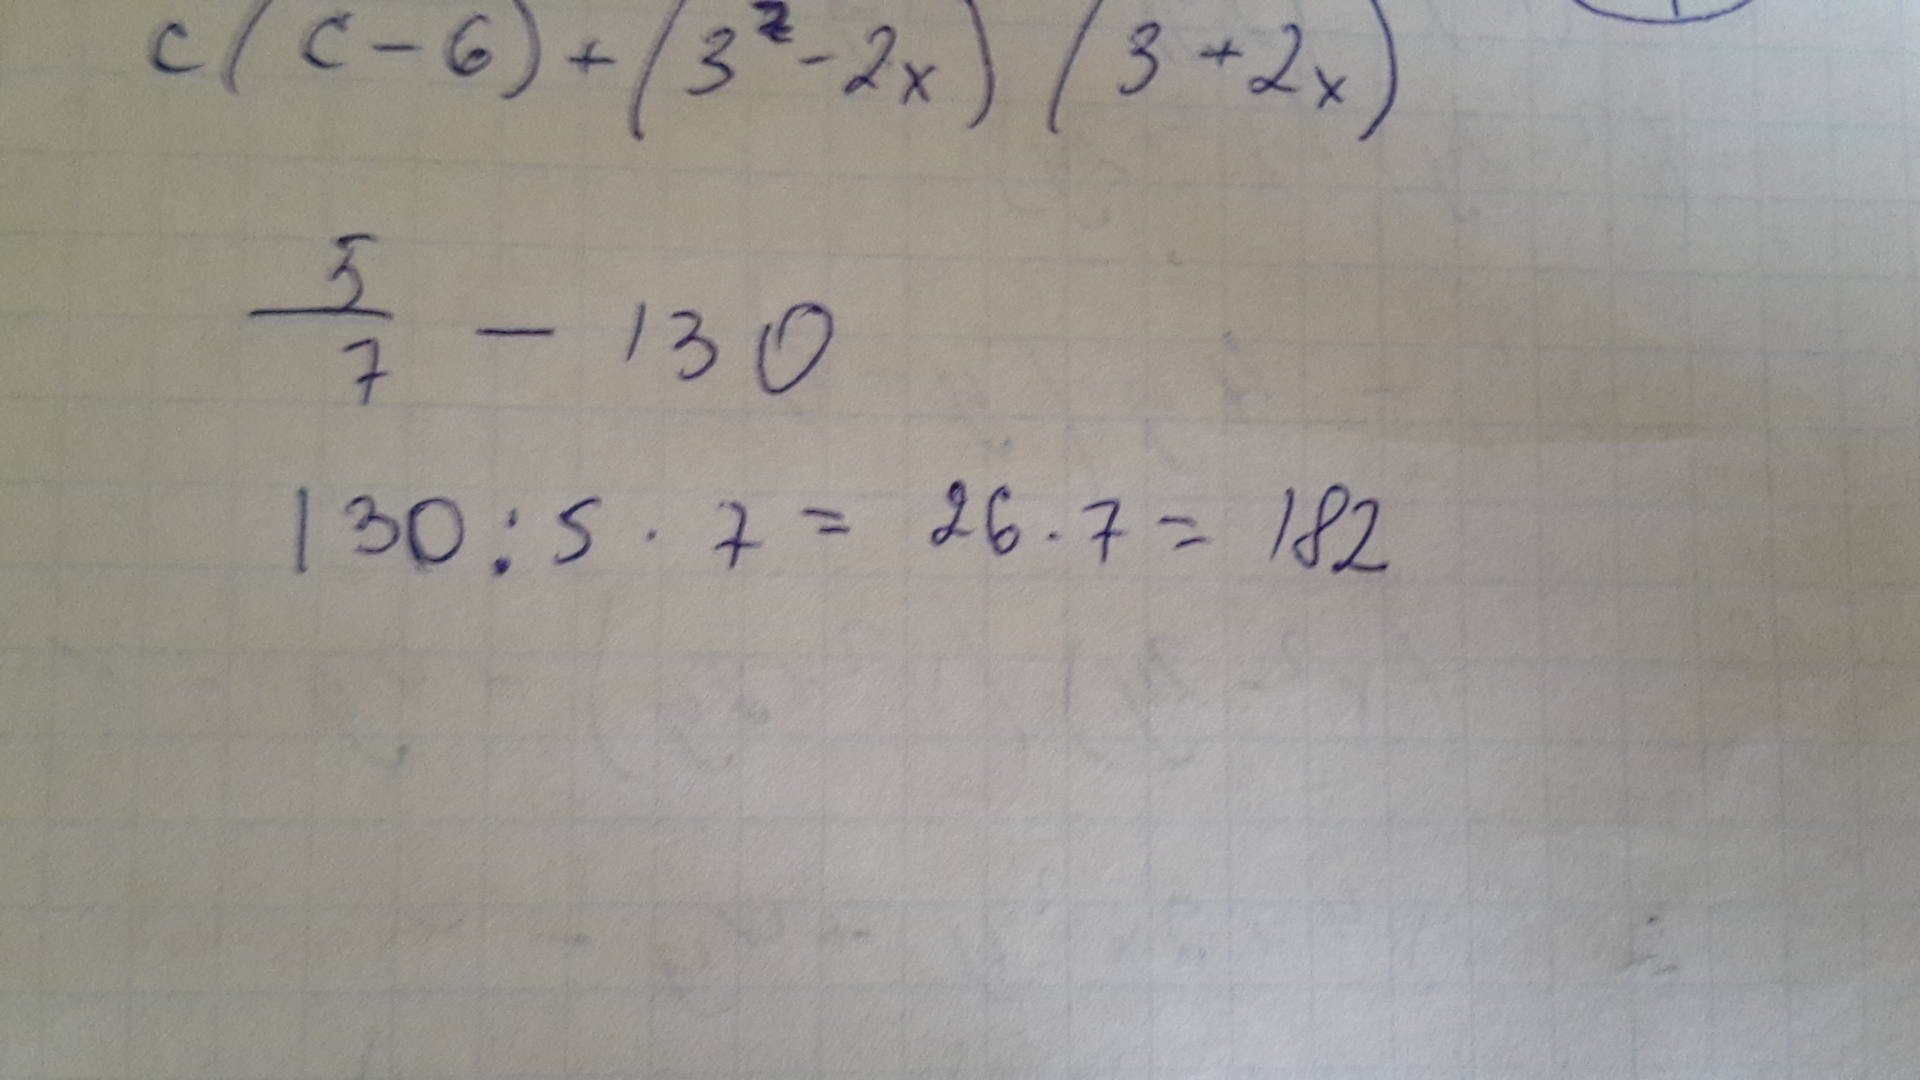 c(c-6)+(3²-2x)(3+2x)
5/7 — 130
130:5·7=26·7=182